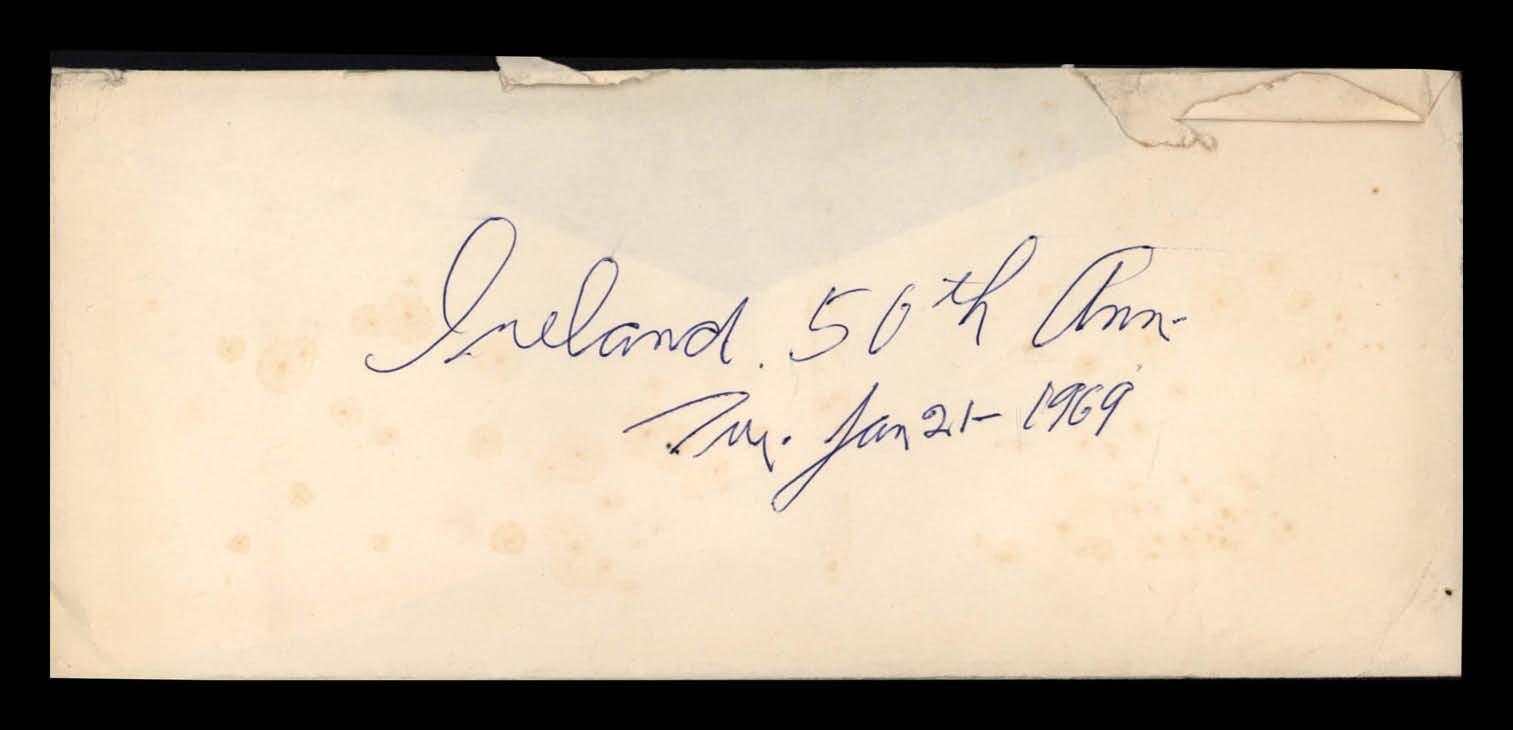 Ireland. 50th Ann.
Jan 21- 1969